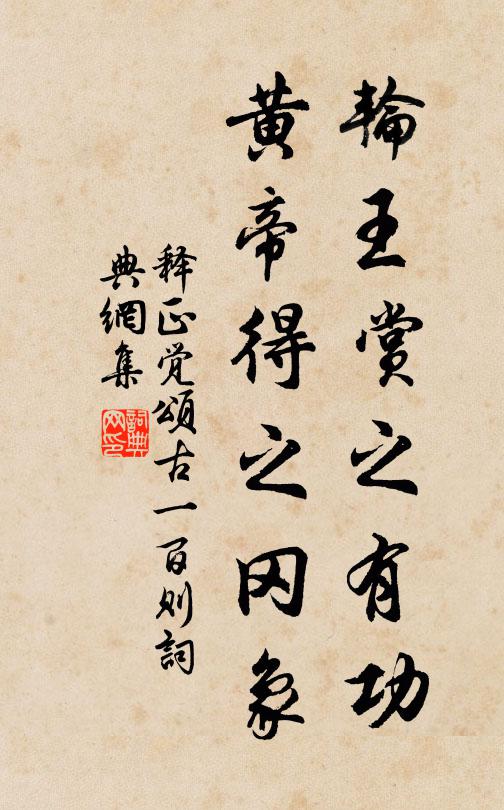 輪王賞之有功
黄帝得之罔象
释正觉頌古一百则詞
典網集
詞典网印